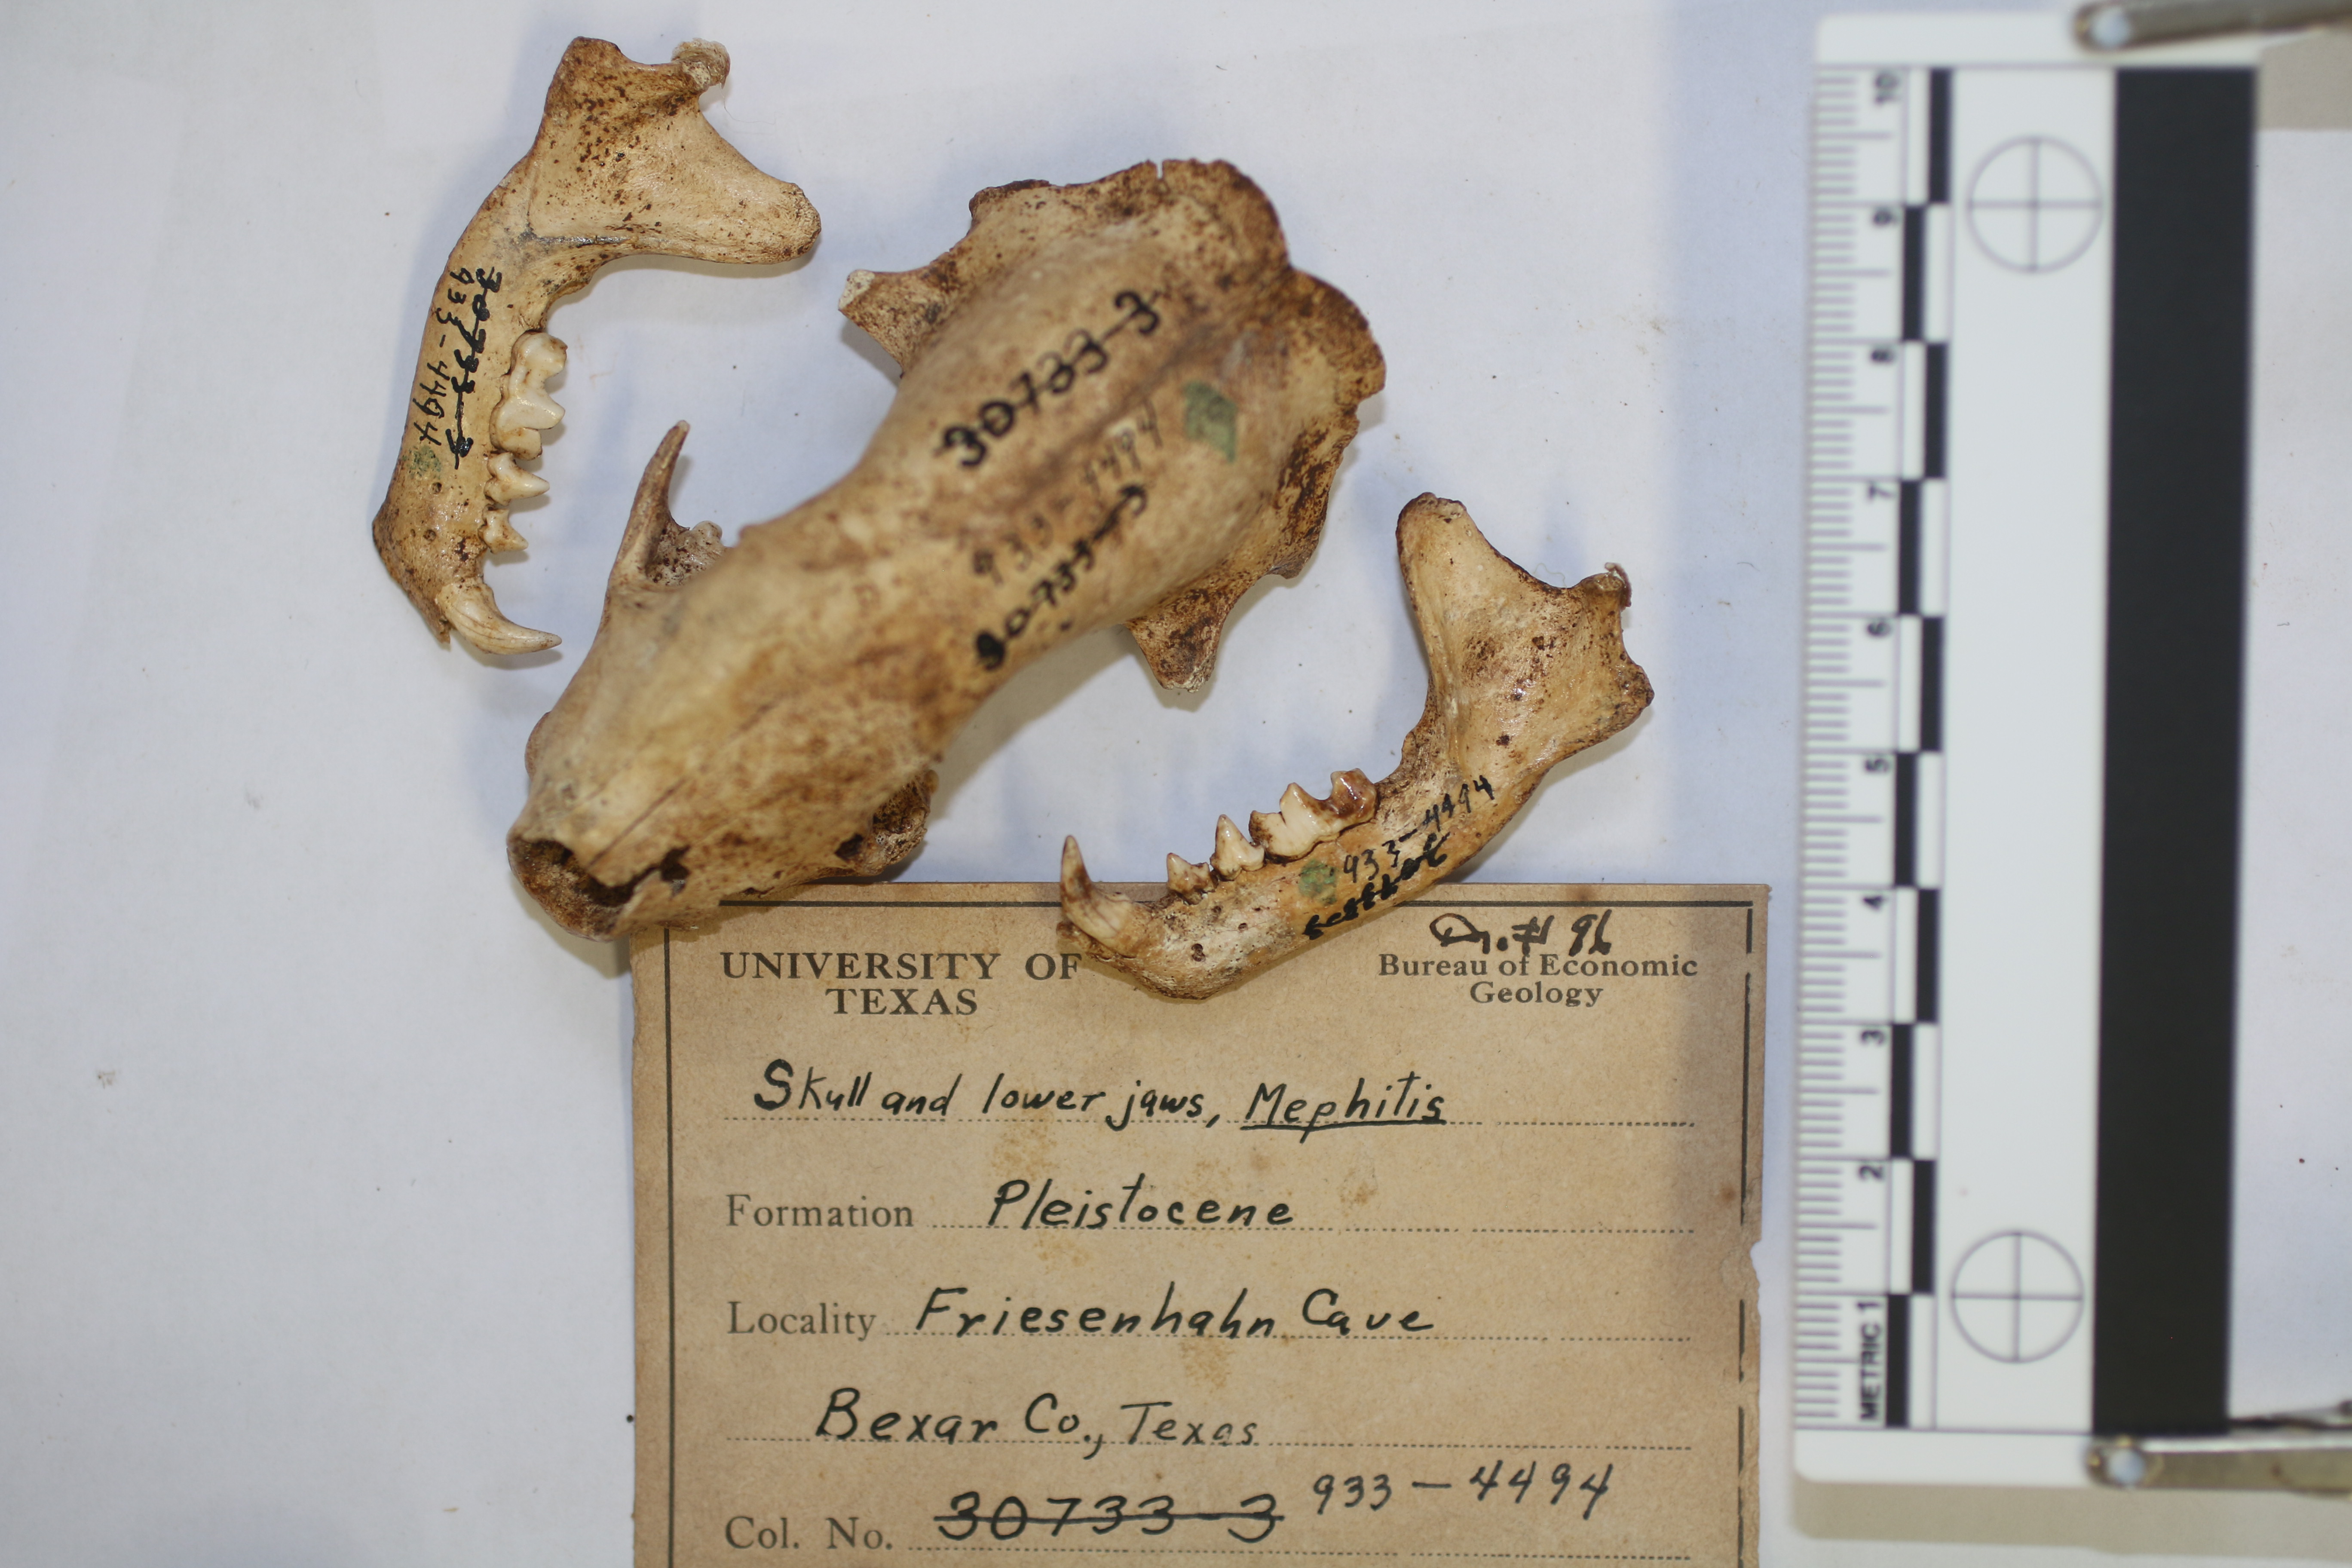 UNIVERSITY OF
TEXAS
Bureau of Economic
Geology
Skull and lower jaws, Mephitis
Formation Pleistocene
Locality Friesenhahn Cave
Bexar Co., Texas
Col. No. 30733-3 933-4494
933-4494
30733-3
30733-3
933-4494
30733-3
933-4494
METRIC 1 2 3 4 5 6 7 8 9 10